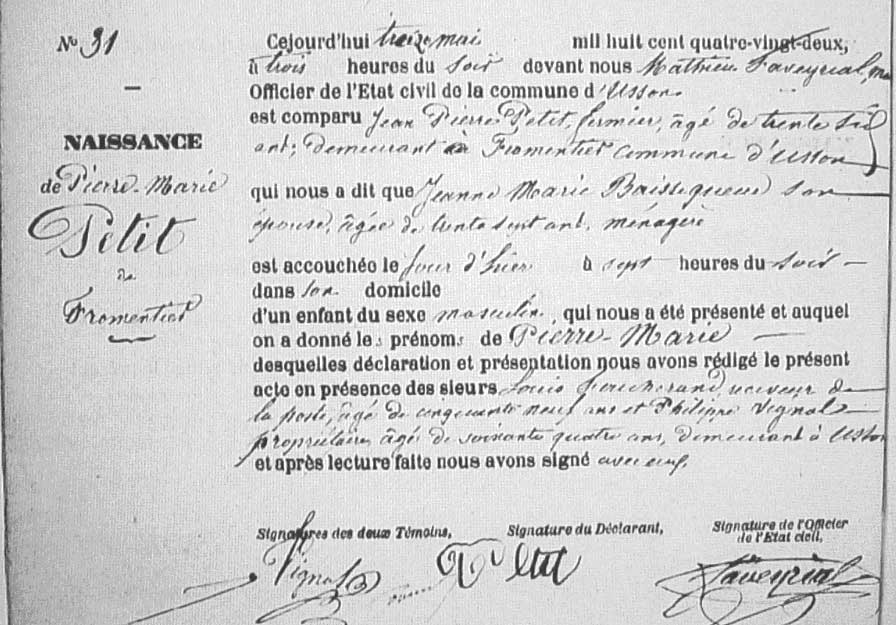 No 31
NAISSANCE
de Pierre-Marie
Petit
de
Fromentier
Cejourd'hui treize mai mil huit cent quatre-vingt-deux,
à trois heures du soir devant nous Mathieu Faveyrial,
Officier de l'Etat civil de la commune d'Usson
est comparu Jean Pierre Petit, fermier, âgé de trente six
ans; demeurant à Fromentier commune d'Usson
qui nous a dit que Jeanne Marie son
épouse, âgée de trente sept ans, ménagère
est accouchée le jour d'hier à sept heures du soir
dans son domicile
d'un enfant du sexe masculin, qui nous a été présenté et auquel
on a donné les prénoms de Pierre-Marie
desquelles déclaration et présentation nous avons rédigé le présent
acte en présence des sieurs Louis receveur de
la poste, âgé de cinquante neuf ans et Philippe Vignal
propriétaire, âgé de soixante quatre ans, demeurant à Usson
et après lecture faite nous avons signé avec eux.
Signatures des deux Témoins, Signature du Déclarant, Signature de l'Officier
de l'Etat civil,
Vignal Petit Faveyrial